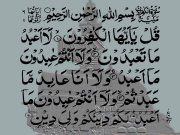 بِسْمِ اللهِ الرَّحْمٰنِ الرَّحِيْمِ
قُلْ يٰۤاَيُّهَا الْكٰفِرُوْنَ لَاۤ اَعْبُدُ
مَا تَعْبُدُوْنَ وَلَاۤ اَنْتُمْ عٰبِدُوْنَ
مَاۤ اَعْبُدُ وَلَاۤ اَنَا عَابِدٌ مَّا
عَبَدْتُّمْ وَلَاۤ اَنْتُمْ عٰبِدُوْنَ مَاۤ
اَعْبُدُ لَكُمْ دِيْنُكُمْ وَلِيَ دِيْنِ